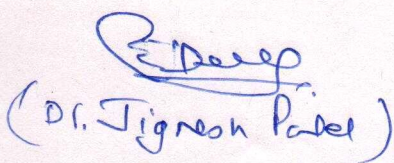 (Dr. Jignesh Patel)